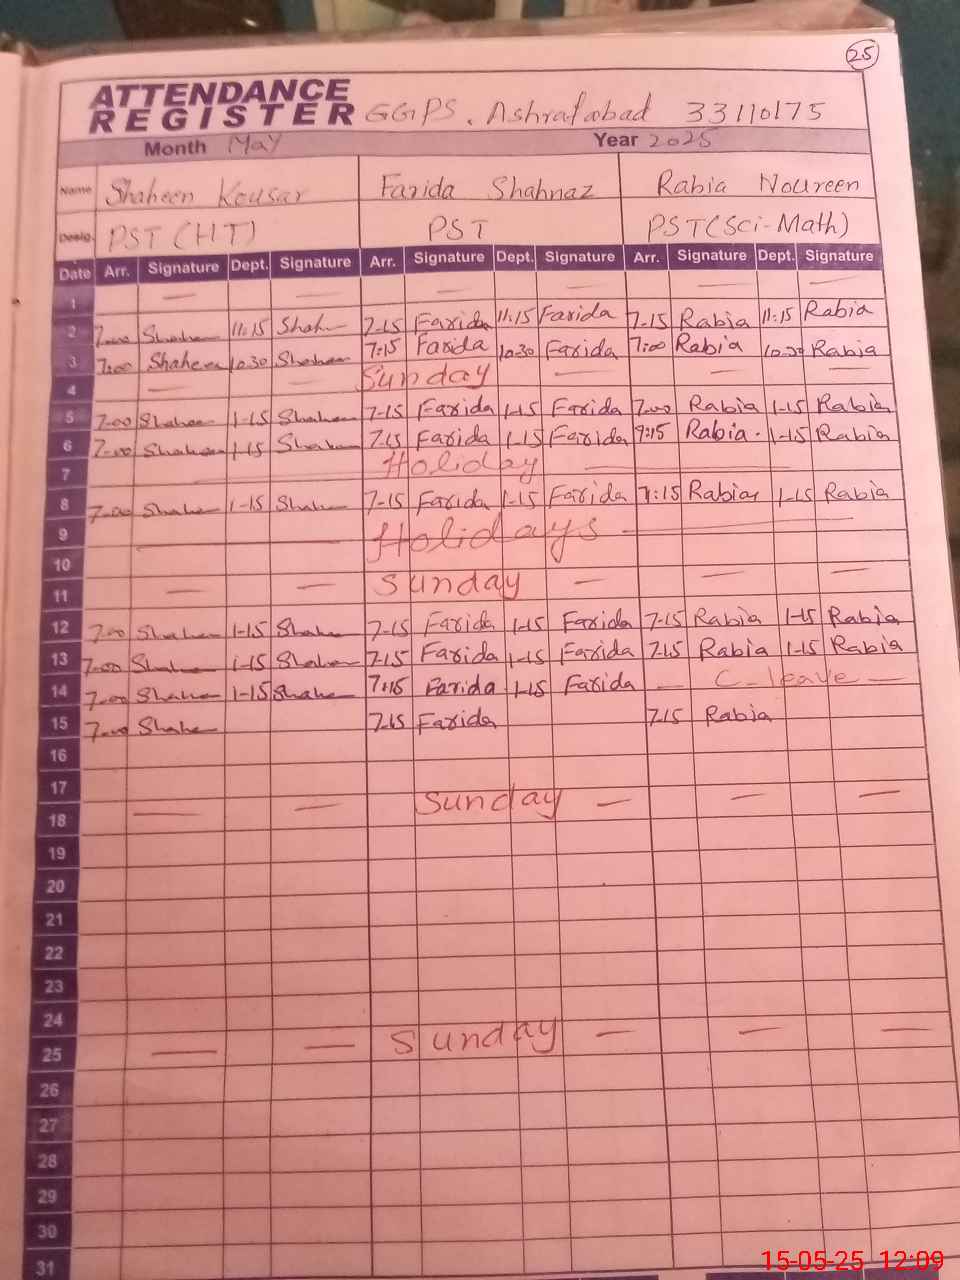 25
ATTENDANCE
REGISTER GGPS. Ashrafabad 33110175
Month May Year 2025
Name Shaheen Kousar Farida Shahnaz Rabia Noureen
Desig. PST (HT) PST PST(Sci-Math)
Date Arr. Signature Dept. Signature Arr. Signature Dept. Signature Arr. Signature Dept. Signature
1 — — — — — —
2 7-00 Shaheen 11:15 Shah 7-15 Farida 11:15 Farida 7-15 Rabia 11:15 Rabia
3 7:00 Shaheen 10.30 Shaheen 7:15 Farida 10.30 Farida 7:00 Rabia 10.30 Rabia
4 — — Sunday — — —
5 7-00 Shaheen 1-15 Shaheen 7-15 Farida 1-15 Farida 7-00 Rabia 1-15 Rabia
6 7-00 Shaheen 1-15 Shaheen 7-15 Farida 1-15 Farida 7:15 Rabia. 1-15 Rabia
7 Holiday
8 7-00 Shaheen 1-15 Shaheen 7-15 Farida 1-15 Farida 7:15 Rabia 1-15 Rabia
9 Holidays
10
11 — — Sunday — — —
12 7-00 Shaheen 1-15 Shahe 7-15 Farida 1-15 Farida 7-15 Rabia 1-15 Rabia
13 7-00 Shaheen 1-15 Shaheen 7-15 Farida 1-15 Farida 7-15 Rabia 1-15 Rabia
14 7-00 Shaheen 1-15 Shahe 7:15 Farida 1-15 Farida — C-leave —
15 7-00 Shahe 7-15 Farida 7-15 Rabia
16
17
18 — — Sunday — — —
19
20
21
22
23
24
25 — — Sunday — — —
26
27
28
29
30
31
15-05-25 12:09